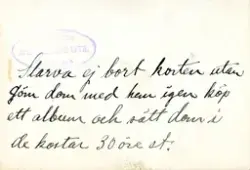 Slarva ej bort korten utan
göm dom med hem igen köp
ett album och sätt dom i
de kostar 30 öre st.